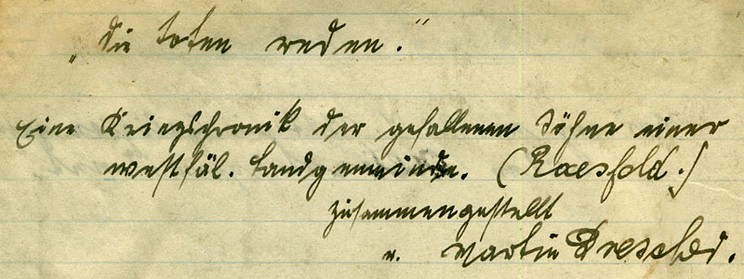 „Die Toten reden."
Eine Kriegschronik der gefallenen Söhne einer
westfäl. Landgemeinde. (Raesfeld.)
zusammengestellt
v. Martin